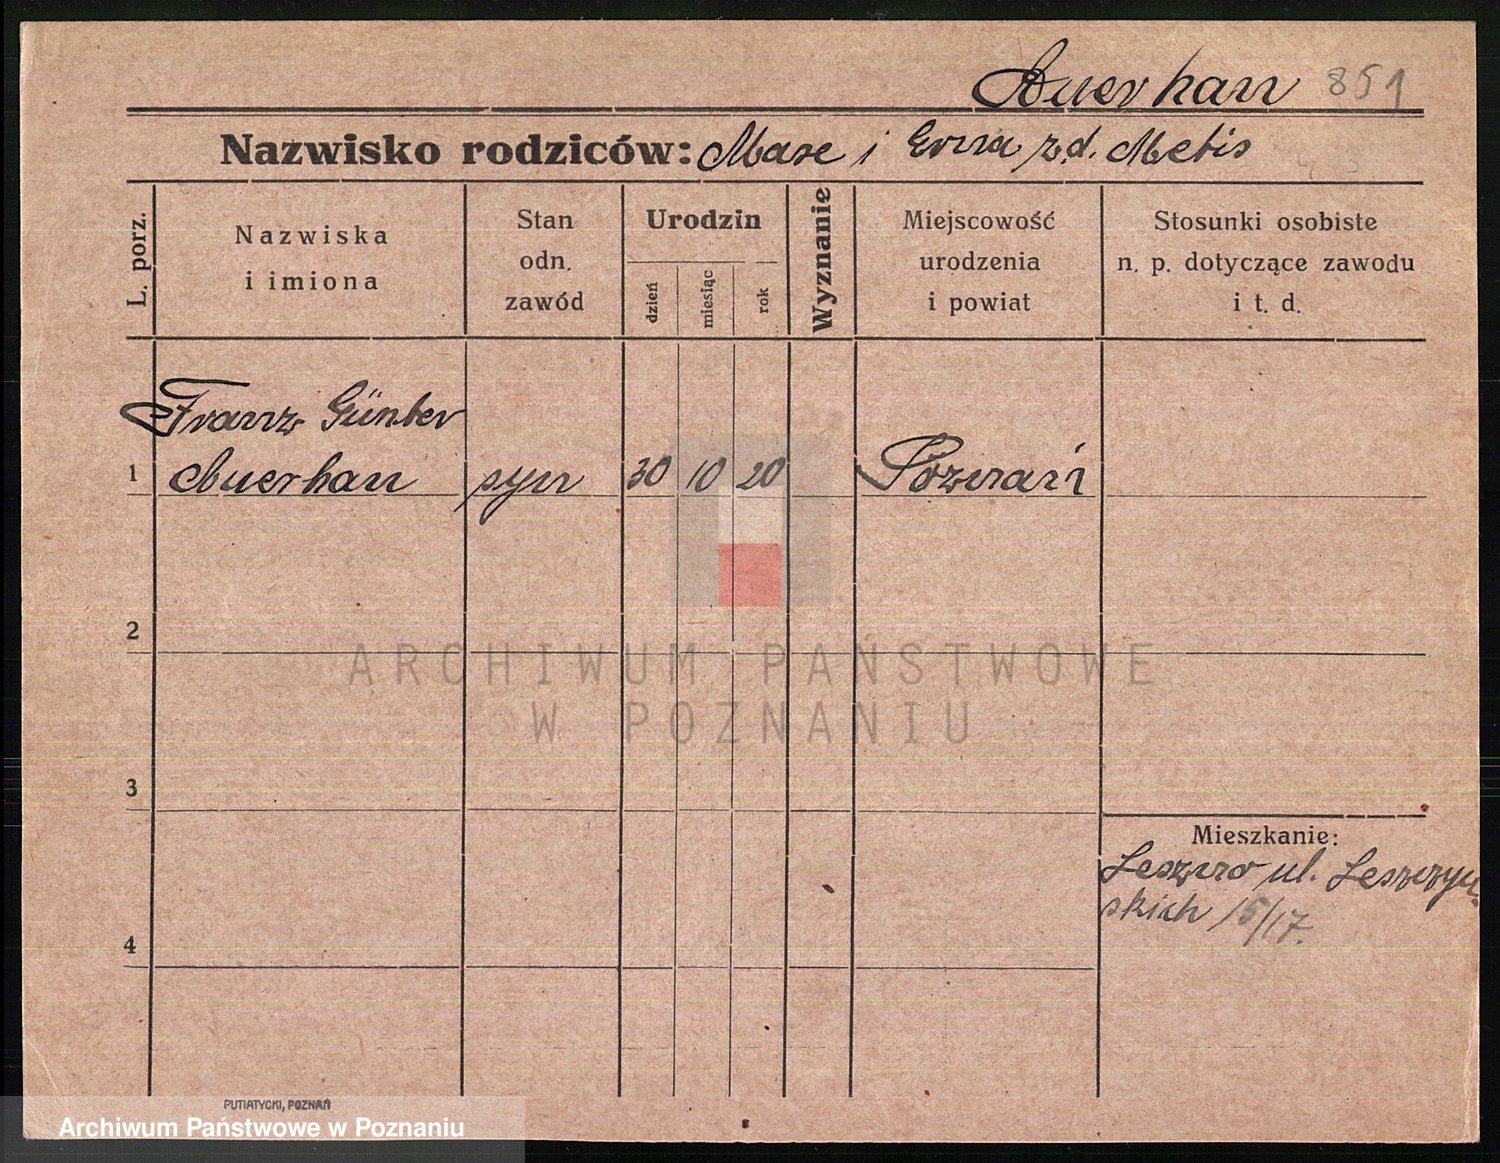 Auerhan 851
Nazwisko rodziców: Maxe i Erna z.d. Metis
L. porz.
Nazwiska
i imiona
Stan
odn.
zawód
Urodzin
dzień
miesiąc
rok
Wyznanie
Miejscowość
urodzenia
i powiat
Stosunki osobiste
n. p. dotyczące zawodu
i t. d.
Franz Günter
1 Auerhan syn 30 10 20 Poznań
2
ARCHIWUM PAŃSTWOWE
W POZNANIU
3
Mieszkanie:
Leszno ul. Leszczyń-
skich 15/17.
4
PUTIATYCKI, POZNAŃ
Archiwum Państwowe w Poznaniu